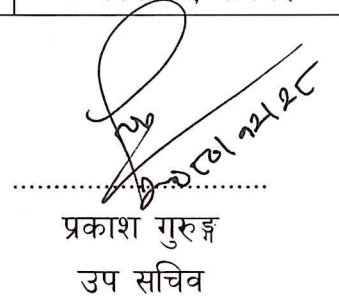 २०८०/१२/२८
..........................................
प्रकाश गुरुङ्ग
उप सचिव